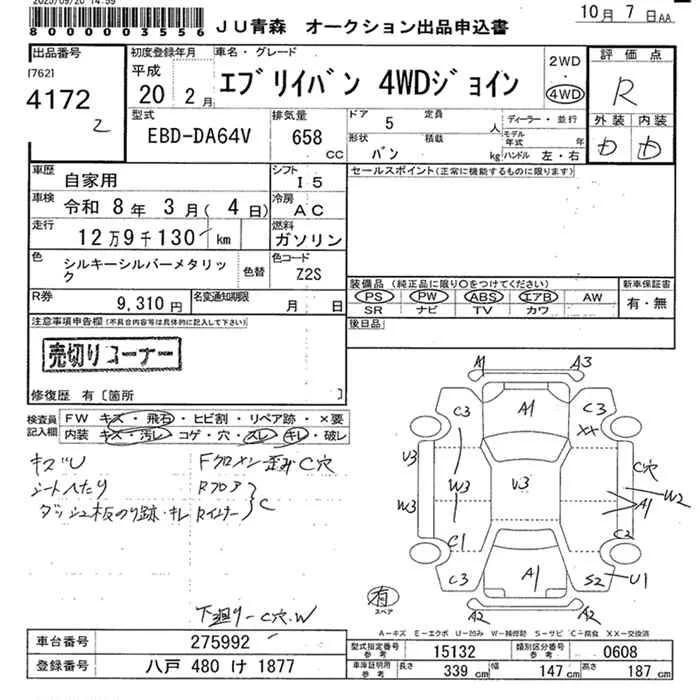 2025/09/20 14:59
80000003556
JU青森 オークション出品申込書
10月 7日AA
出品番号
[762]
4172
2
初度登録年月
平成
20 2月
車名・グレード
エブリイバン 4WDジョイン
2WD
・
4WD
評価点
R
外装 内装
D D
型式
EBD-DA64V
排気量
658
CC
ドア 定員
5 人
形状 積載
バン kg
ディーラー・並行
モデル年式 年
ハンドル 左・右
車歴
自家用
シフト
I5
車検
令和 8年 3月( 4日)
冷房
AC
走行
12万9千130 km
燃料
ガソリン
色
シルキーシルバーメタリック
色替
色コード
Z2S
R券
9,310円
名変通知期限
月 日
セールスポイント(正常に機能するものに限ります)
装備品(純正品に限り○をつけてください)
PS PW ABS エアB AW
SR ナビ TV カワ
新車保証書
有・無
後日品
注意事項申告欄(不具合内容等は具体的に記入して下さい)
売切りコーナー
修復歴 有〔箇所 〕
検査員記入欄
FW キズ・飛石・ヒビ割・リペア跡・×要
内装 キズ・汚レ コゲ・穴・スレ・キレ・破レ
キズU
シートへたり
ダッシュ板のり跡・キレ
Fクロメン歪み C穴
Rフロア
Rインナー
C
下廻り-C穴.W
A1 A3
C3 A1 C3
XX
U3 C穴
W3 W3 V3 W2
A1
C1 C2
C3 A1 S2 U1
A2 A2
有
スペア
A-キズ E-エクボ U-凹み W-補修跡 S-サビ C-腐食 XX-交換済
車台番号 275992
登録番号 八戸 480 け 1877
型式指定番号 参考 15132
類別区分番号 参考 0608
車庫証明用 参考
長さ 339 cm 幅 147 cm 高さ 187 cm